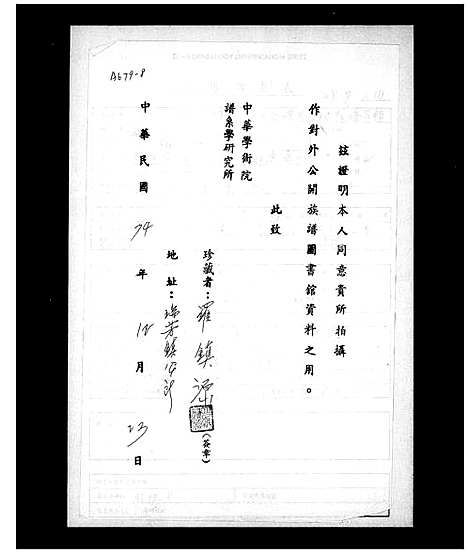 A679-8
茲證明本人同意貴所拍攝
作對外公開族譜圖書館資料之用。
此致
中華學術院
譜系學研究所
珍藏者：羅鎮源 (簽章)
地址：瑞芳鎮
中華民國 74 年 12 月 23 日